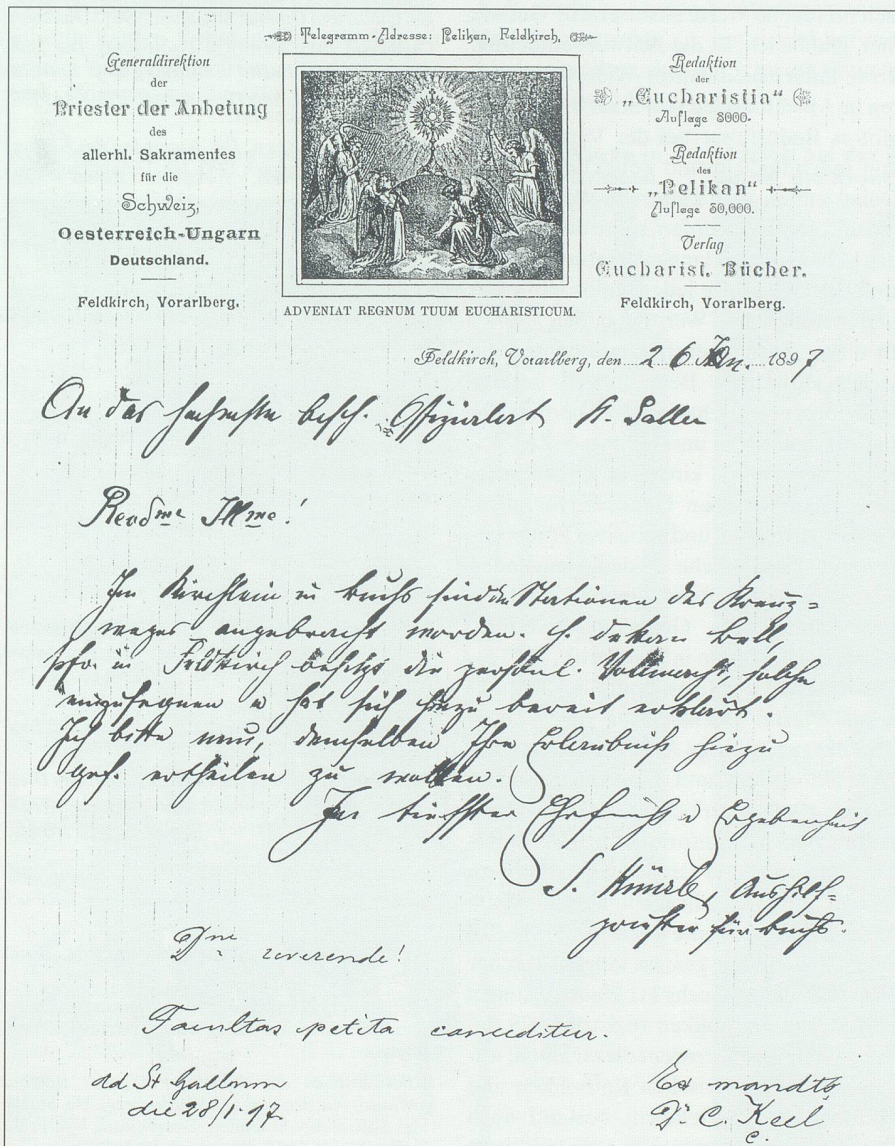 Telegramm-Adresse: Pelikan, Feldkirch.
Generaldirektion
der
Priester der Anbetung
des
allerhl. Sakramentes
für die
Schweiz,
Oesterreich-Ungarn
Deutschland.
Feldkirch, Vorarlberg.
ADVENIAT REGNUM TUUM EUCHARISTICUM.
Redaktion
der
„Eucharistia“
Auflage 8000.
Redaktion
des
„Pelikan“
Auflage 30,000.
Verlag
Eucharist. Bücher.
Feldkirch, Vorarlberg.
Feldkirch, Vorarlberg, den 26 Jan. 1897
An das bisch. Offizialat St. Gallen
Revdme Illme!
Im Kirchlein in Buchs sind die Stationen des Kreuz=
weges angebracht worden. H. Dekan
Pfr. in Feldkirch besitzt die persönl. Vollmacht, solche
einzusegnen u hat sich hiezu bereit erklärt.
Ich bitte nun, demselben Ihre Erlaubniß hiezu
gef. ertheilen zu wollen.
In tiefster Ehrfurcht u Ergebenheit
J. Künzle, Aushilf=
priester für Buchs.
Dne reverende!
Facultas petita conceditur.
ad St Gallum
die 28/1.97.
Ex mandto
Dr. C. Keel
c.